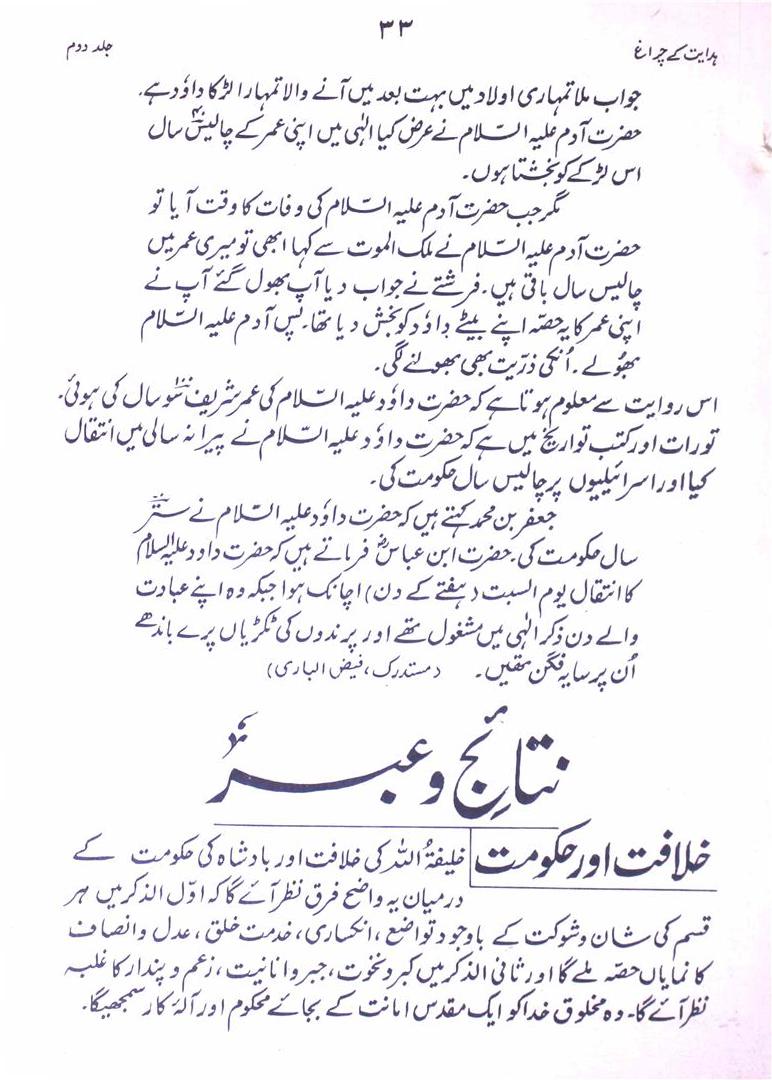 ۳۳
ہدایت کے چراغ
جلد دوم
جواب ملا تمہاری اولاد میں بہت بعد میں آنے والا تمہارا لڑکا داؤد ہے۔
حضرت آدم علیہ السّلام نے عرض کیا الٰہی میں اپنی عمر کے چالیس۴۰ سال
اس لڑکے کو بخشتا ہوں۔
مگر جب حضرت آدم علیہ السّلام کی وفات کا وقت آیا تو
حضرت آدم علیہ السّلام نے ملک الموت سے کہا ابھی تو میری عمر میں
چالیس سال باقی ہیں۔ فرشتے نے جواب دیا آپ بھول گئے آپ نے
اپنی عمر کا یہ حصّہ اپنے بیٹے داؤد کو بخش دیا تھا۔ پس آدم علیہ السّلام
بھُولے۔ اُنکی ذرّیت بھی بھولنے لگی۔
اس روایت سے معلوم ہوتا ہے کہ حضرت داؤد علیہ السّلام کی عمر شریف سَو۱۰۰ سال کی ہوئی۔
تورات اور کتب تواریخ میں ہے کہ حضرت داؤد علیہ السّلام نے پیرانہ سالی میں انتقال
کیا اور اسرائیلیوں پر چالیس سال حکومت کی۔
جعفر بن محمد کہتے ہیں کہ حضرت داؤد علیہ السّلام نے ستّر۷۰
سال حکومت کی۔ حضرت ابن عباسؓ فرماتے ہیں کہ حضرت داود علیہ السلام
کا انتقال یوم السبت (ہفتے کے دن) اچانک ہوا جبکہ وہ اپنے عبادت
والے دن ذکر الٰہی میں مشغول تھے اور پرندوں کی ٹکڑیاں پرے باندھے
اُن پر سایہ فگن تھیں۔ (مستدرک، فیض الباری)
نتائج و عبر
خلافت اور حکومت خلیفۃُ اللہ کی خلافت اور بادشاہ کی حکومت کے
درمیان یہ واضح فرق نظر آئے گا کہ اوّل الذکر میں ہر
قسم کی شان و شوکت کے باوجود تواضع، انکساری، خدمت خلق، عدل و انصاف
کا نمایاں حصّہ ملے گا اور ثانی الذکر میں کبر و نخوت، جبر و انانیت، زعم و پندار کا غلبہ
نظر آئے گا۔ وہ مخلوق خدا کو ایک مقدس امانت کے بجائے محکوم اور آلۂ کار سمجھیگا۔